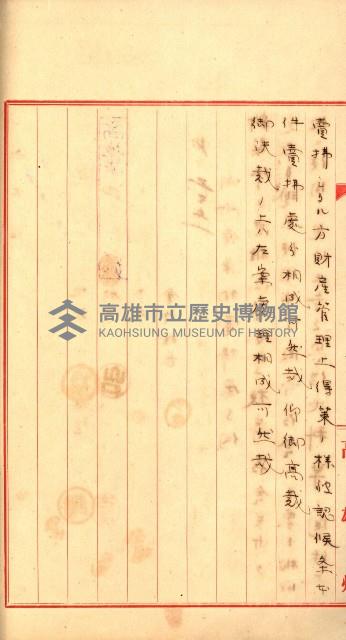 賣拂スル方財產管理上得策ノ樣被認候条本
件賣拂處分相成可然哉 仰御高裁
御決裁ノ上ハ左案處理相成可然哉
高雄州
高雄市立歷史博物館
KAOHSIUNG MUSEUM OF HISTORY